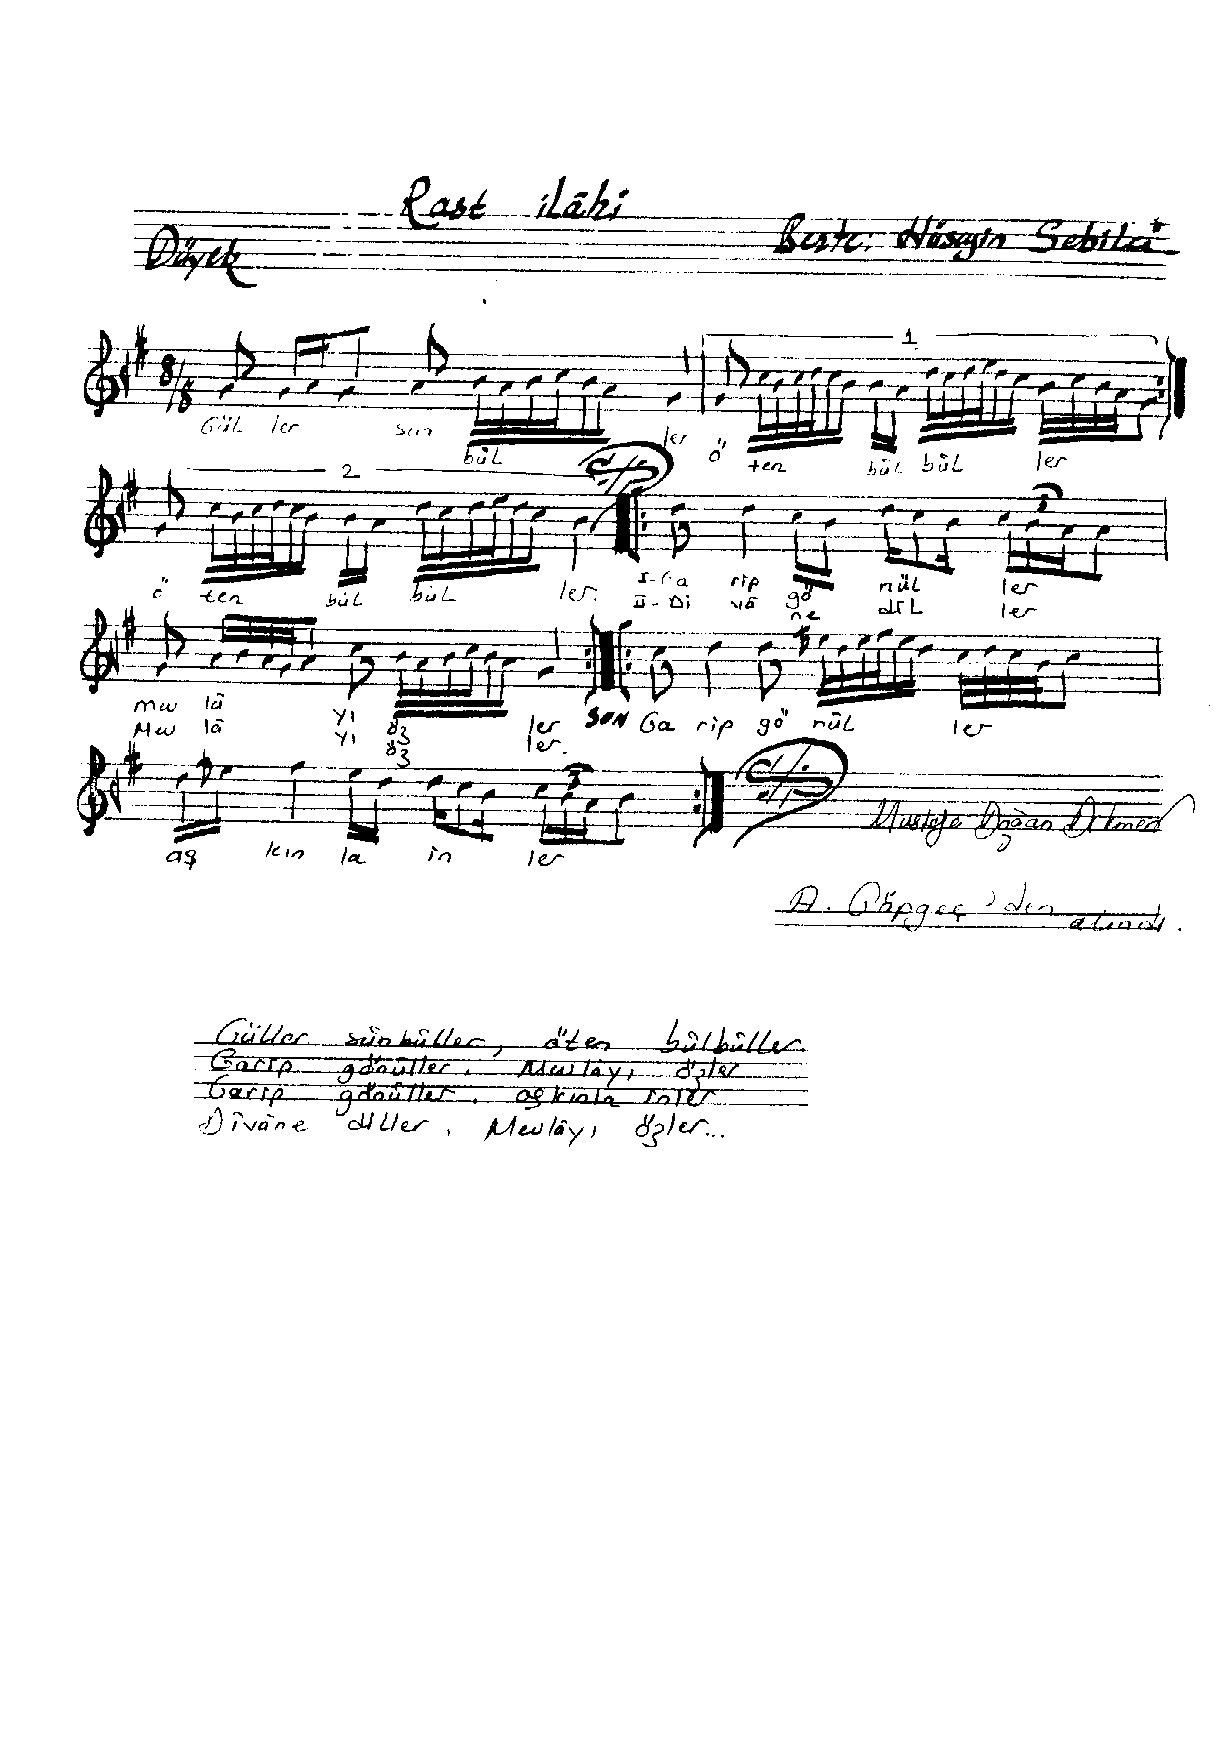 Rast ilâhi
Düyek Beste: Hüseyin Sebilci
8/8 1
Gül ler sün bül ler ö ten bül bül ler
2
ö ten bül bül ler. I-Ga rip gö nül ler
II-Di vâ ne dil ler
Mev lâ yı öz ler SON Ga rip gö nül ler
Mev lâ yı öz ler.
3
aş kın la in ler
Mustafa Doğan Dikmen
A. 'den alındı.
Güller sünbüller, öten bülbüller.
Garip gönüller, Mevlâyı özler
Garip gönüller, aşkınla inler
Dîvâne diller, Mevlâyı özler...